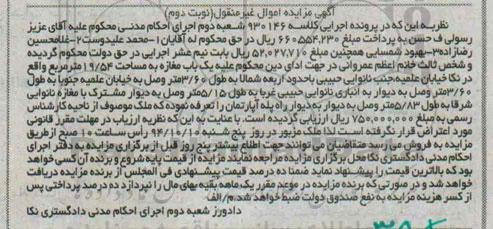 آگهی مزایده اموال غیرمنقول(نوبت دوم)
نظریه این که در پرونده اجرایی کلاسه ۹۳۰۱۴۶ شعبه دوم اجرای احکام مدنی محکوم علیه آقای عزیز
رسولی ف حسن به پرداخت مبلغ ۶۶۰۵۵۴۲۳۰ ریال در حق محکوم له آقایان ۱-محمد علیدوست۲-غلامحسین
رضازاد۳-بهبود شمسایی همچنین مبلغ ۵۲،۰۲۷،۷۱۰ ریال بابت نیم عشر اجرایی در حق دولت محکوم گردیده
و شخص ثالث خانم اعظم عمروانی در جهت ادای دین محکوم علیه یک باب مغازه به مساحت ۱۹/۵۴ مترمربع واقع
در نکا خیابان علمیه جنب نانوایی حبیبی باحدود اربعه شمالا به طول ۳/۶۰متر وصل به خیابان علمیه جنوبا به طول
۳/۶۰متر وصل به دیوار به انباری نانوایی حبیبی غربا به طول ۵/۱۵متر وصل به دیوار مشترک با مغازه نانوایی
شرقا به طول ۵/۸۳متر وصل به دیوار به دیوار راه پله آپارتمان را تعرفه نموده که ملک موصوف از ناحیه کارشناس
رسمی به مبلغ ۷۵۰،۰۰۰،۰۰۰ ریال ارزیابی گردیده است. با عنایت به این که نظریه ارزیاب در مهلت مقرر قانونی
مورد اعتراض قرار نگرفته است لذا ملک مزبور در روز پنج شنبه ۹۴/۱۰/۱۰ رأس ساعت ۱۰ صبح از طریق
مزایده به فروش می رسد متقاضیان می توانند جهت اطلاع بیشتر پنج روز قبل از برگزاری مزایده به دفتر اجرای
احکام مدنی دادگستری نکا محل برگزاری مزایده مراجعه نمایند مزایده از قیمت پایه شروع و برنده آن کسی خواهد
بود که بالاترین قیمت را پیشنهاد نماید ضمنا ده درصد قیمت پیشنهادی فی المجلس از برنده مزایده دریافت
خواهد شد و در صورتی که برنده مزایده در موعد مقرر یک ماهه بقیه بهای مال را نپردازد ده درصد پرداختی پس
از کسر هزینه مزایده به نفع صندوق دولت ضبط خواهد شد.م/الف
دادورز شعبه دوم اجرای احکام مدنی دادگستری نکا